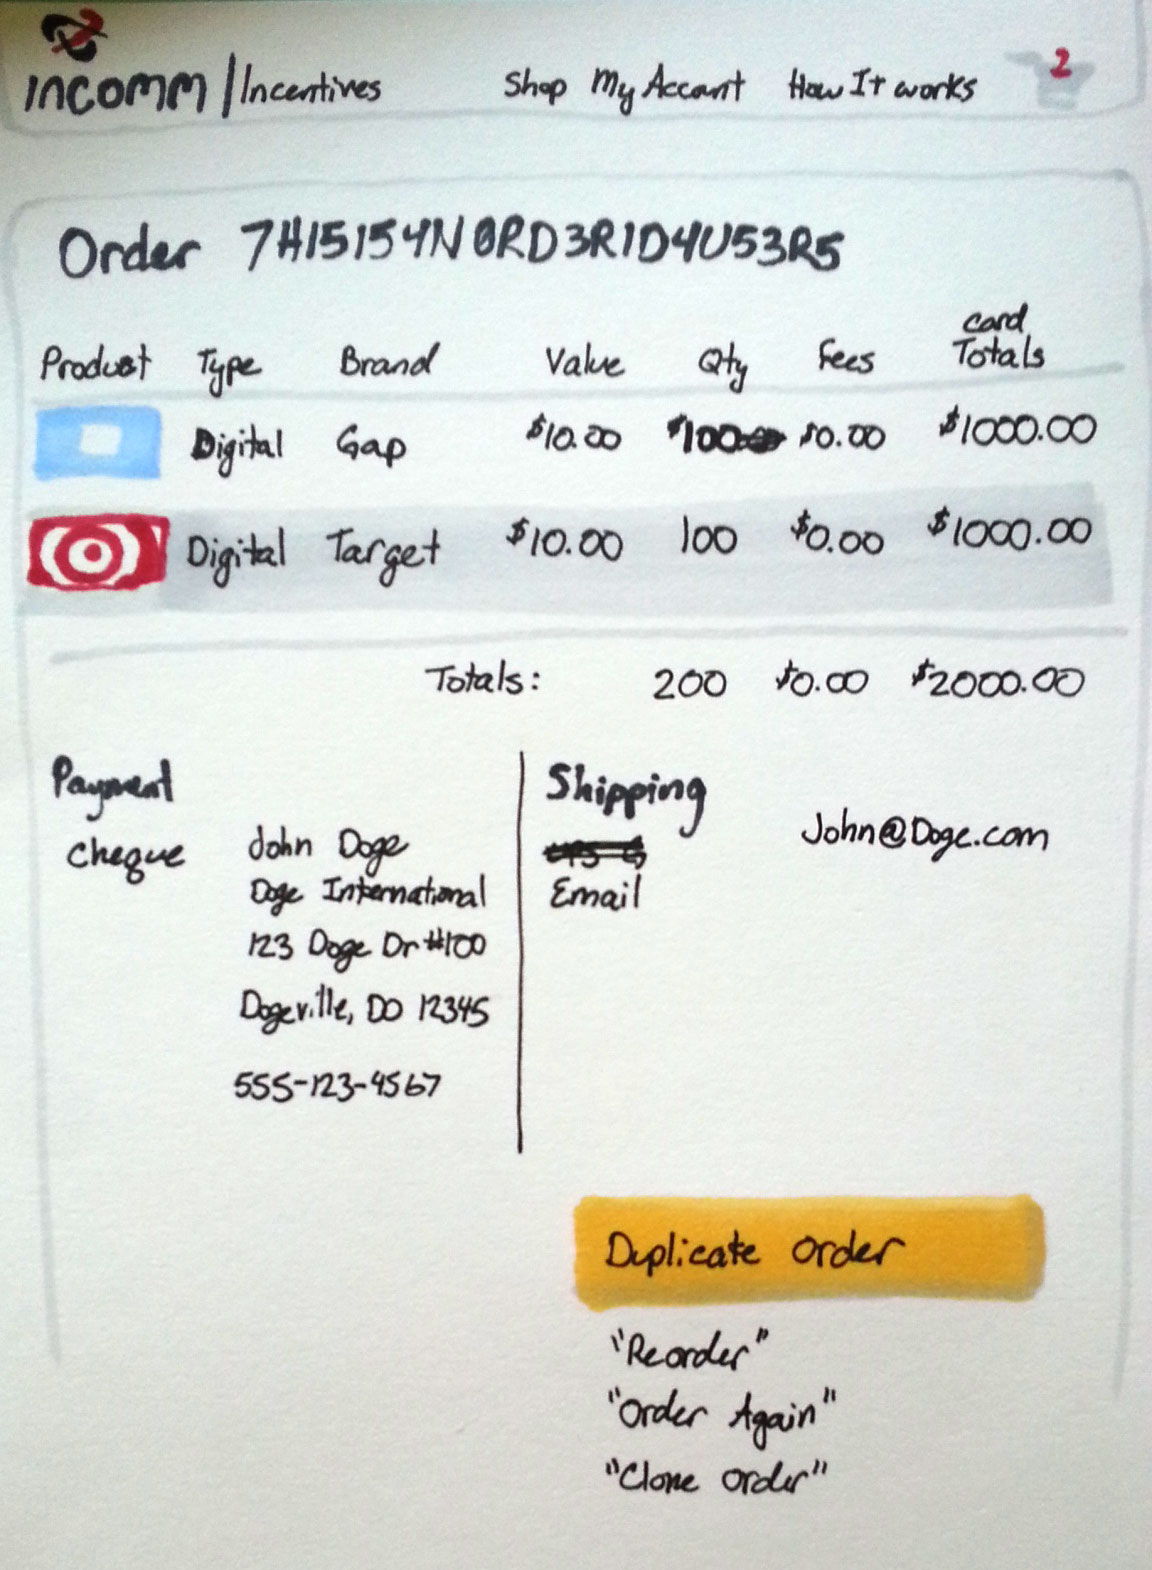 incomm | Incentives Shop My Account How It works 2
Order 7H15154N0RD3R1D4U53R5
Product Type Brand Value Qty Fees Card Totals
Digital Gap $10.00 100 $0.00 $1000.00
Digital Target $10.00 100 $0.00 $1000.00
Totals: 200 $0.00 $2000.00
Payment
Cheque
John Doge
Doge International
123 Doge Dr #100
Dogeville, DO 12345
555-123-4567
Shipping
Email
John@Doge.com
Duplicate Order
"Reorder"
"Order Again"
"Clone Order"